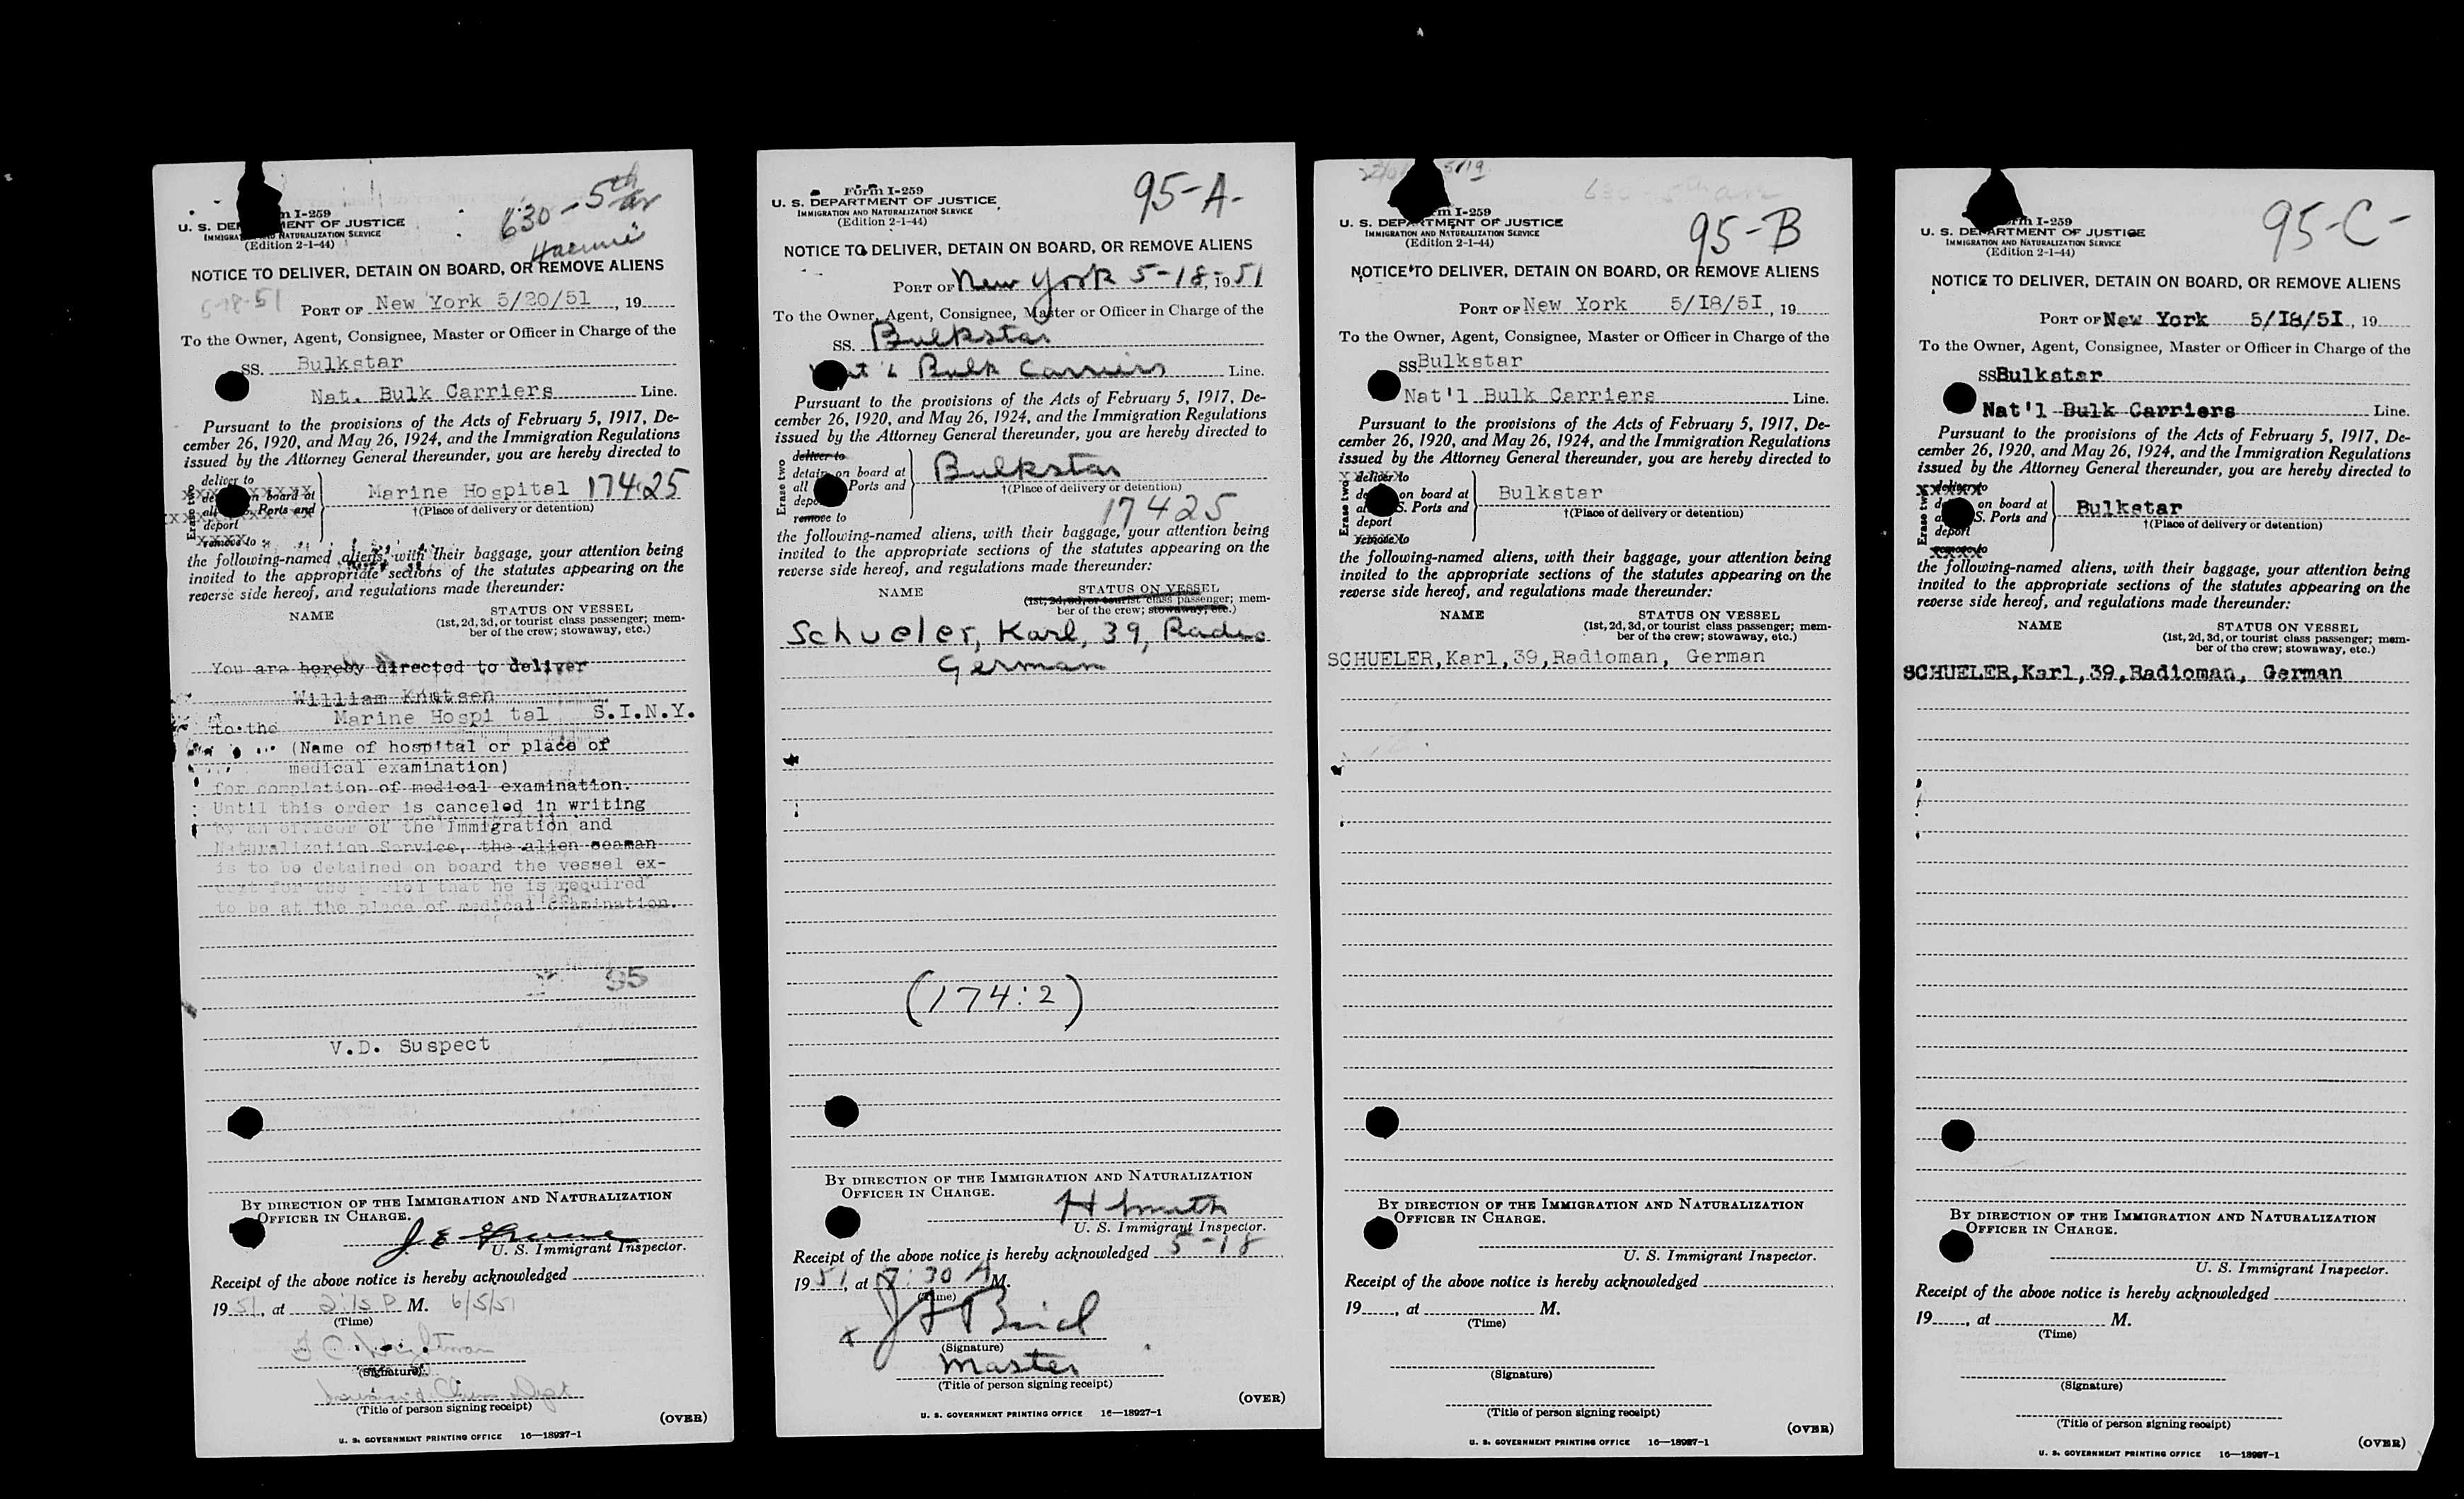 630-5th
Form I-259
U. S. DEPARTMENT OF JUSTICE
IMMIGRATION AND NATURALIZATION SERVICE
(Edition 2-1-44)
NOTICE TO DELIVER, DETAIN ON BOARD, OR REMOVE ALIENS
5-18-51
PORT OF New York 5/20/51, 19
To the Owner, Agent, Consignee, Master or Officer in Charge of the
SS. Bulkstar
Nat. Bulk Carriers Line.
Pursuant to the provisions of the Acts of February 5, 1917, De-
cember 26, 1920, and May 26, 1924, and the Immigration Regulations
issued by the Attorney General thereunder, you are hereby directed to
Erase two
deliver to
on board at
all Ports and
deport
remove to
Marine Hospital 17425
†(Place of delivery or detention)
the following-named aliens, with their baggage, your attention being
invited to the appropriate sections of the statutes appearing on the
reverse side hereof, and regulations made thereunder:
NAME STATUS ON VESSEL
(1st, 2d, 3d, or tourist class passenger; mem-
ber of the crew; stowaway, etc.)
You are hereby directed to deliver
William Knutsen
to the Marine Hospi tal S.I.N.Y.
(Name of hospital or place of
medical examination)
for completion of medical examination.
Until this order is canceled in writing
by an officer of the Immigration and
Naturalization Service, the alien seaman
is to be detained on board the vessel ex-
cept for the period that he is required
to be at the place of medical examination.
95
V.D. Suspect
BY DIRECTION OF THE IMMIGRATION AND NATURALIZATION
OFFICER IN CHARGE.
U. S. Immigrant Inspector.
Receipt of the above notice is hereby acknowledged
19 51, at 2:15 P. M. 6/5/51
(Time)
(Signature)
(Title of person signing receipt)
(OVER)
U. S. GOVERNMENT PRINTING OFFICE 16—18927-1
95-A-
Form I-259
U. S. DEPARTMENT OF JUSTICE
IMMIGRATION AND NATURALIZATION SERVICE
(Edition 2-1-44)
NOTICE TO DELIVER, DETAIN ON BOARD, OR REMOVE ALIENS
PORT OF New York 5-18, 1951
To the Owner, Agent, Consignee, Master or Officer in Charge of the
SS. Bulkstar
Nat'l Bulk Carriers Line.
Pursuant to the provisions of the Acts of February 5, 1917, De-
cember 26, 1920, and May 26, 1924, and the Immigration Regulations
issued by the Attorney General thereunder, you are hereby directed to
Erase two
deliver to
detain on board at
all Ports and
deport
remove to
Bulkstar
†(Place of delivery or detention)
17425
the following-named aliens, with their baggage, your attention being
invited to the appropriate sections of the statutes appearing on the
reverse side hereof, and regulations made thereunder:
NAME STATUS ON VESSEL
(1st, 2d, 3d, or tourist class passenger; mem-
ber of the crew; stowaway, etc.)
Schueler, Karl, 39, Radio
German
(174:2)
BY DIRECTION OF THE IMMIGRATION AND NATURALIZATION
OFFICER IN CHARGE.
H Smith
U. S. Immigrant Inspector.
Receipt of the above notice is hereby acknowledged 5-18
19 51, at 8:30 A M.
(Time)
x
(Signature)
Master
(Title of person signing receipt)
(OVER)
U. S. GOVERNMENT PRINTING OFFICE 16—18927-1
5/19
95-B
Form I-259
U. S. DEPARTMENT OF JUSTICE
IMMIGRATION AND NATURALIZATION SERVICE
(Edition 2-1-44)
NOTICE TO DELIVER, DETAIN ON BOARD, OR REMOVE ALIENS
PORT OF New York 5/I8/5I, 19
To the Owner, Agent, Consignee, Master or Officer in Charge of the
SS. Bulkstar
Nat'l Bulk Carriers Line.
Pursuant to the provisions of the Acts of February 5, 1917, De-
cember 26, 1920, and May 26, 1924, and the Immigration Regulations
issued by the Attorney General thereunder, you are hereby directed to
Erase two
deliver to
on board at
S. Ports and
deport
remove to
Bulkstar
†(Place of delivery or detention)
the following-named aliens, with their baggage, your attention being
invited to the appropriate sections of the statutes appearing on the
reverse side hereof, and regulations made thereunder:
NAME STATUS ON VESSEL
(1st, 2d, 3d, or tourist class passenger; mem-
ber of the crew; stowaway, etc.)
SCHUELER,Karl,39,Radioman, German
BY DIRECTION OF THE IMMIGRATION AND NATURALIZATION
OFFICER IN CHARGE.
U. S. Immigrant Inspector.
Receipt of the above notice is hereby acknowledged
19, at M.
(Time)
(Signature)
(Title of person signing receipt)
(OVER)
U. S. GOVERNMENT PRINTING OFFICE 16—18927-1
95-C-
Form I-259
U. S. DEPARTMENT OF JUSTICE
IMMIGRATION AND NATURALIZATION SERVICE
(Edition 2-1-44)
NOTICE TO DELIVER, DETAIN ON BOARD, OR REMOVE ALIENS
PORT OF New York 5/I8/5I, 19
To the Owner, Agent, Consignee, Master or Officer in Charge of the
SS Bulkstar
Nat'l Bulk Carriers Line.
Pursuant to the provisions of the Acts of February 5, 1917, De-
cember 26, 1920, and May 26, 1924, and the Immigration Regulations
issued by the Attorney General thereunder, you are hereby directed to
Erase two
deliver to
on board at
S. Ports and
deport
remove to
Bulkstar
†(Place of delivery or detention)
the following-named aliens, with their baggage, your attention being
invited to the appropriate sections of the statutes appearing on the
reverse side hereof, and regulations made thereunder:
NAME STATUS ON VESSEL
(1st, 2d, 3d, or tourist class passenger; mem-
ber of the crew; stowaway, etc.)
SCHUELER,Karl,39,Radioman, German
BY DIRECTION OF THE IMMIGRATION AND NATURALIZATION
OFFICER IN CHARGE.
U. S. Immigrant Inspector.
Receipt of the above notice is hereby acknowledged
19, at M.
(Time)
(Signature)
(Title of person signing receipt)
(OVER)
U. S. GOVERNMENT PRINTING OFFICE 16—18927-1